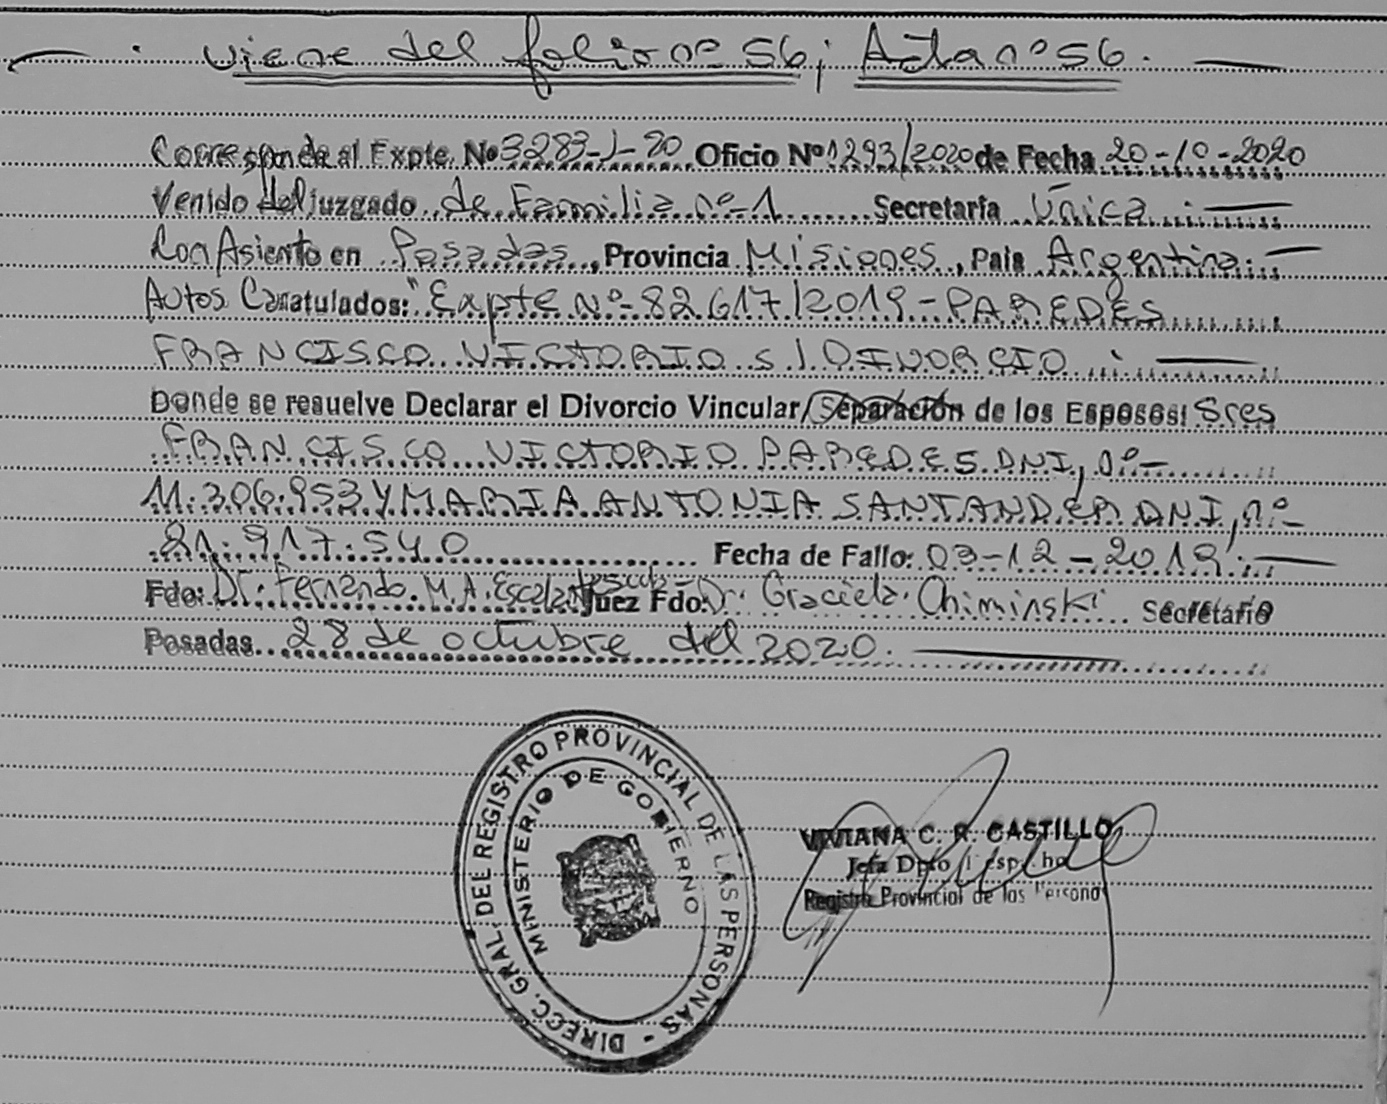 viene del folio nº 56; Acta nº 56.
Corresponde al Expte. Nº 3283-J-20 Oficio Nº 1293/2020 de Fecha 20-10-2020
Venido del juzgado de Familia nº-1 Secretaría Única.
Con Asiento en Posadas, Provincia Misiones, Pais Argentina.
Autos Caratulados: "Expte Nº-82.617/2019-PAREDES
FRANCISCO VICTORIO S/DIVORCIO.
Donde se resuelve Declarar el Divorcio Vincular/Separación de los Esposos: Sres
FRANCISCO VICTORIO PAREDES DNI, nº-
11.306.953 Y MARIA ANTONIA SANTANDER DNI, nº-
21.917.540 Fecha de Fallo: 03-12-2019.
Fdo: Dr. Fernando. M. A. Juez Fdo: Graciela Chiminski Secretario
Posadas 28 de octubre del 2020.
DIRECC. GRAL. DEL REGISTRO PROVINCIAL DE LAS PERSONAS -
MINISTERIO DE GOBIERNO
VIVIANA C. R. CASTILLO
Jefa Dpto
Registro Provincial de las Personas